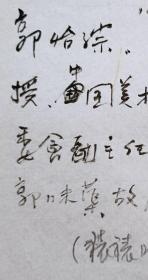 郭怡孮
授、中国美术
委会副主任
郭味蕖故
（